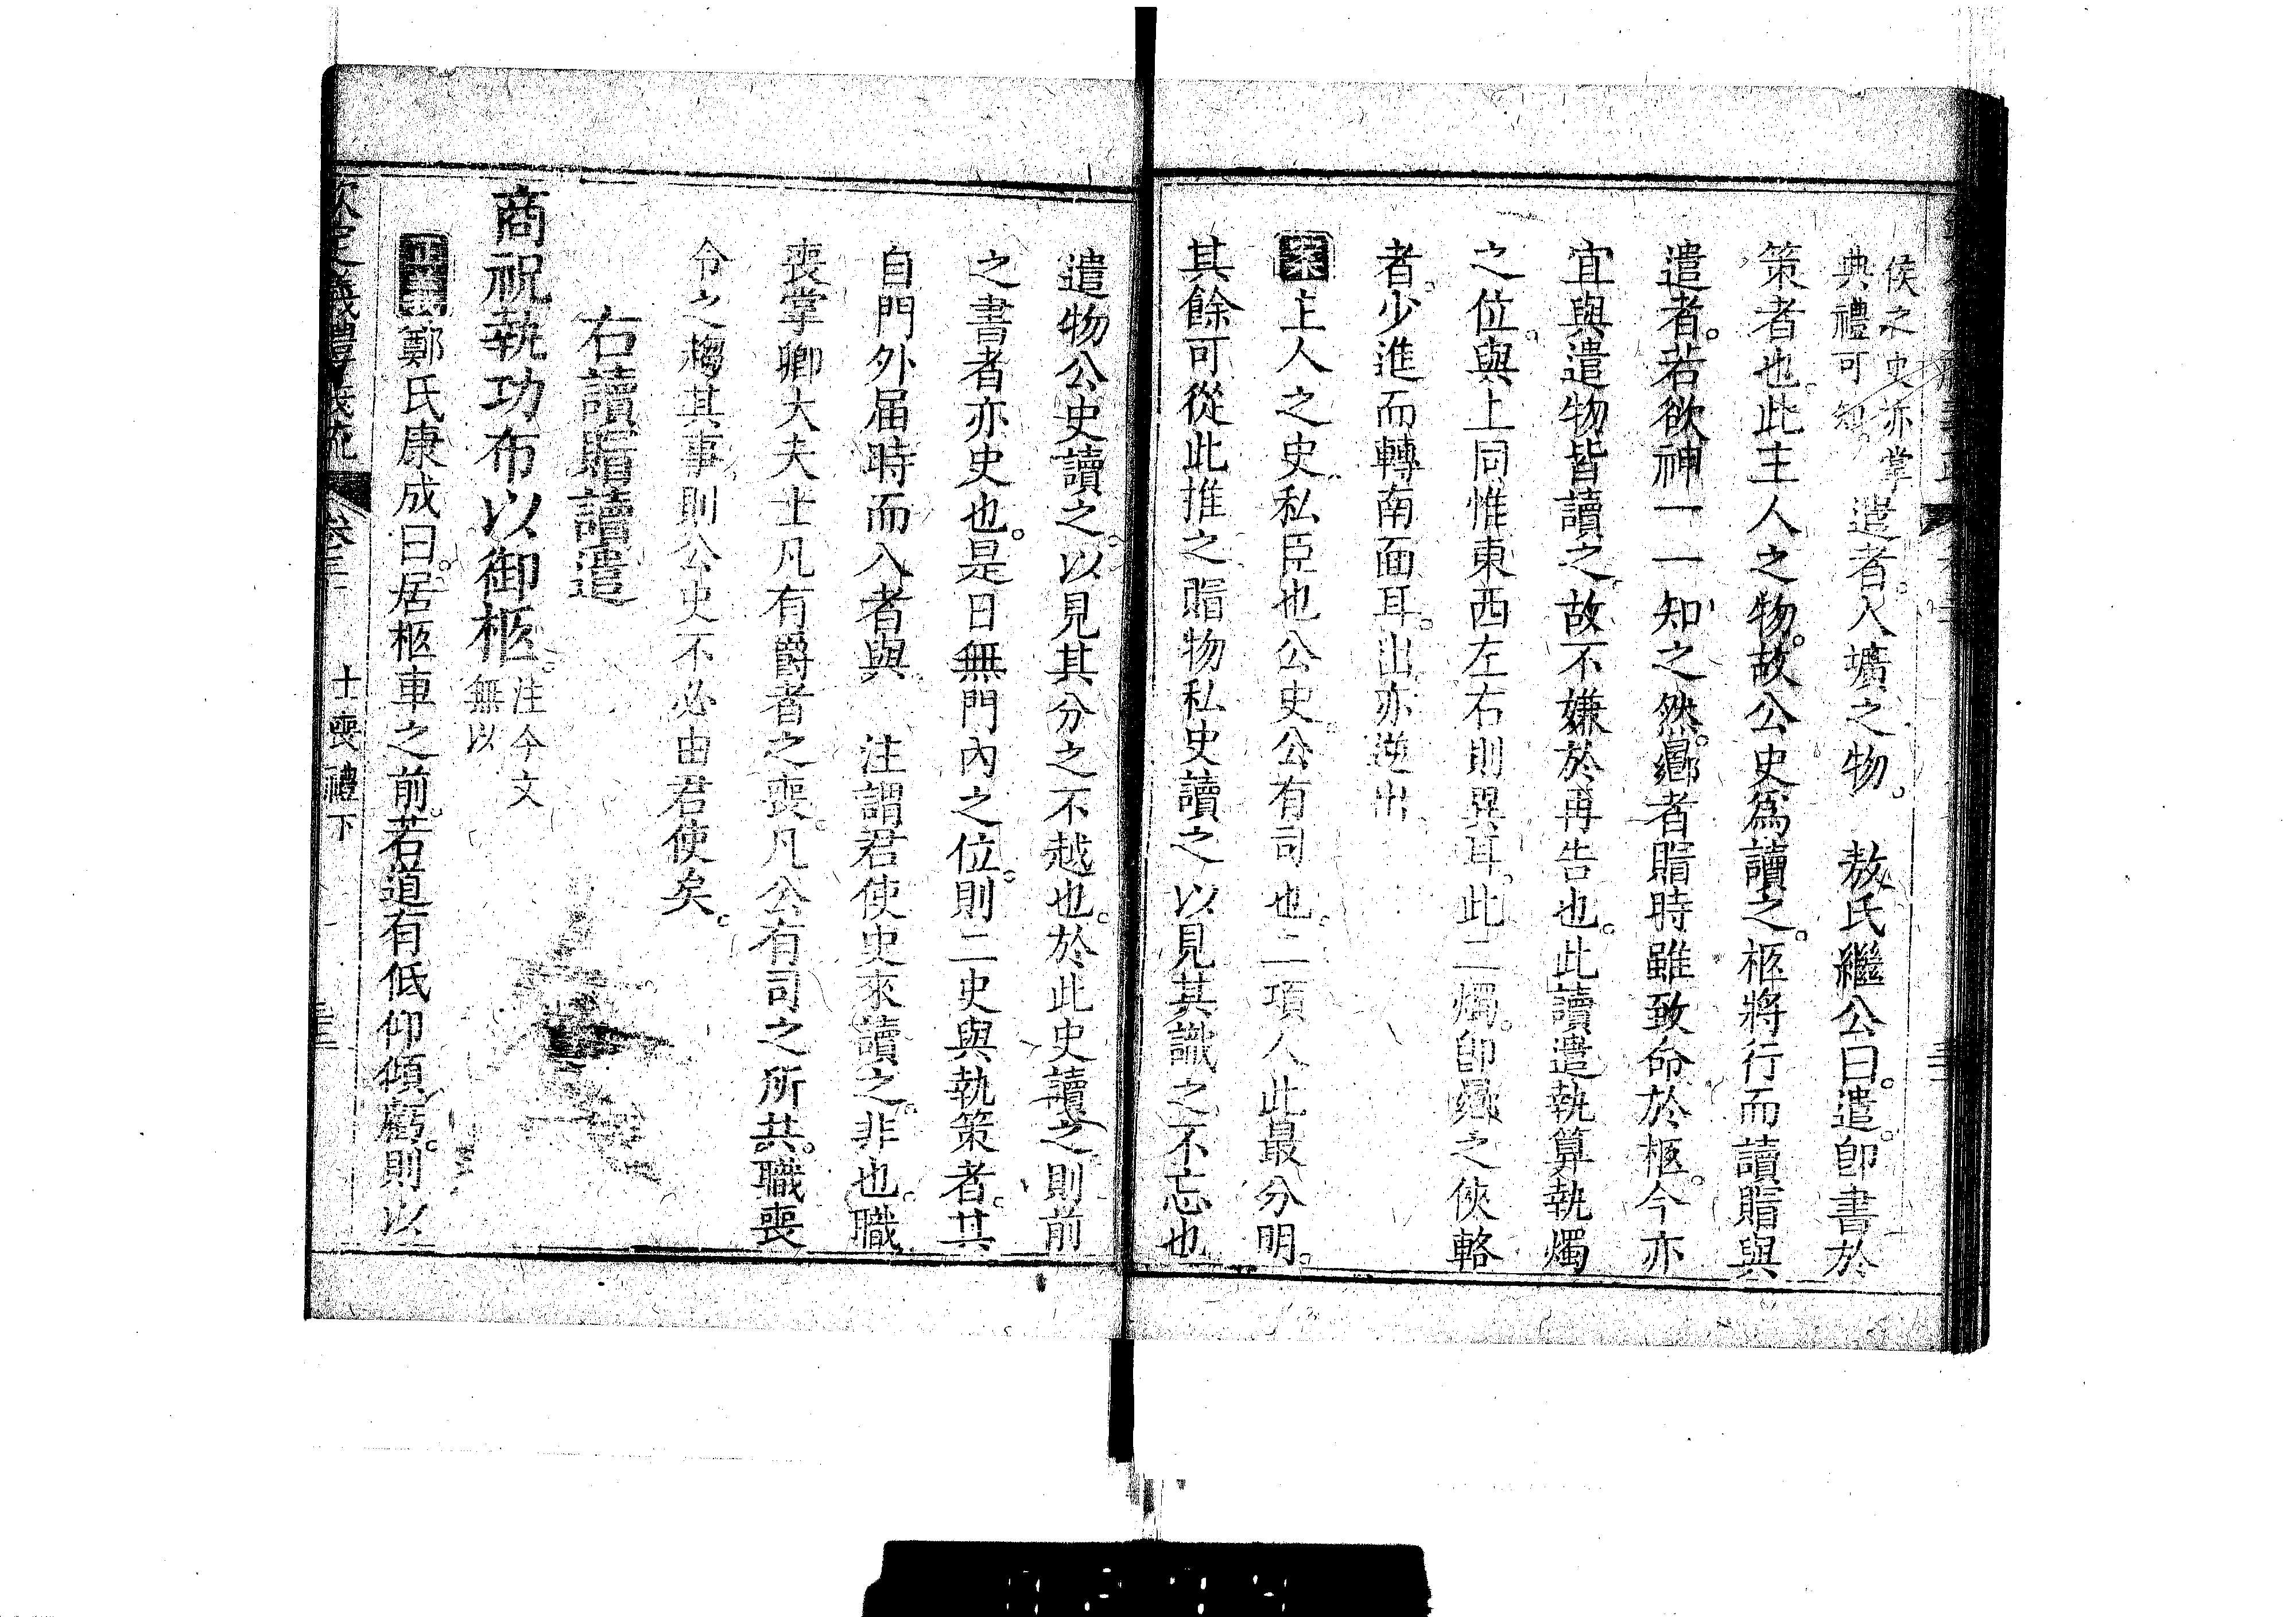 侯之史亦掌
典禮可知
遣者入壙之物。敖氏繼公曰。遣。卽書於
策者也。此主人之物。故公史爲讀之。柩將行而讀賵與
遣者。若欲神一一知之然。曏者賵時雖致命於柩。今亦
宜與遣物皆讀之。故不嫌於再告也。此讀遣執算執燭
之位。與上同惟東西左右則異耳。此二燭。卽曏之俠輅
者。少進而轉南面耳。出亦逆出
案上人之史。私臣也公史。公有司也。二項人此最分明。
其餘可從此推之賵物私史讀之以見其識之不忘也
遣物公史讀之。以見其分之不越也。於此史讀之則前
之書者亦史也。是日無門內之位。則二史與執策者。其
自門外屆時而入者與 注謂君使史來讀之。非也。職
喪掌卿大夫士凡有爵者之喪。凡公有司之所共。職喪
令之趨其事。則公史不必由君使矣。
右讀賵讀遣
商祝執功布以御柩。
注今文
無以
正義鄭氏康成曰。居柩車之前。若道有低仰傾虧。則以
欽定儀禮義疏 卷三 士喪禮下